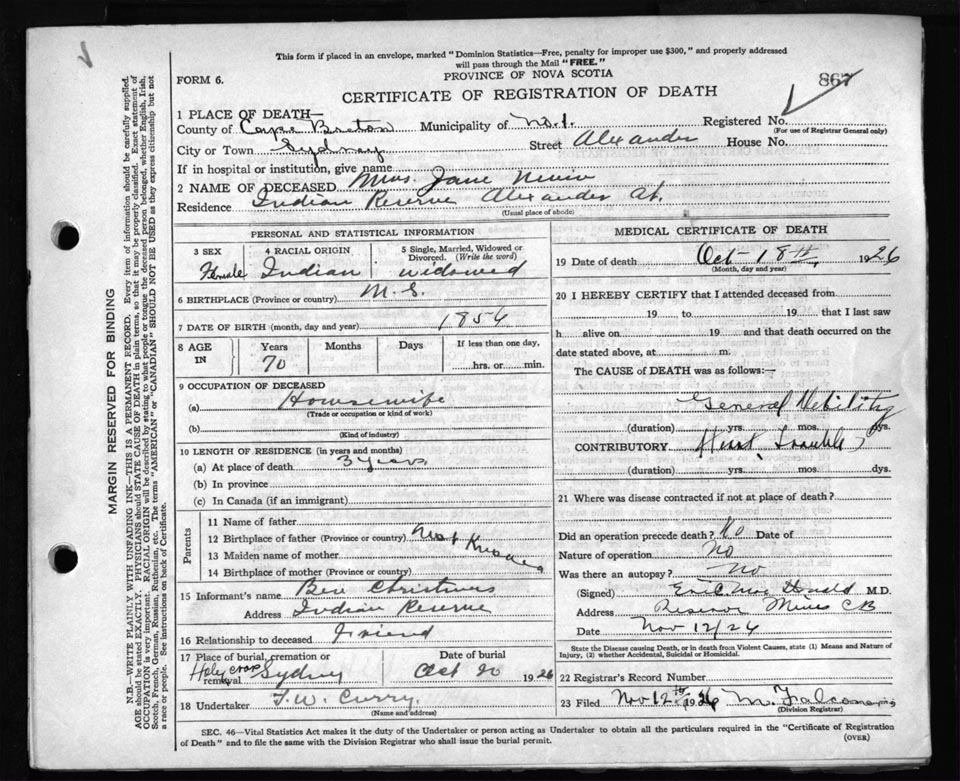 This form if placed in an envelope, marked "Dominion Statistics—Free, penalty for improper use $300," and properly addressed
will pass through the Mail "FREE."
FORM 6.
PROVINCE OF NOVA SCOTIA
867
CERTIFICATE OF REGISTRATION OF DEATH
1 PLACE OF DEATH—
County of Cape Breton Municipality of Registered No.
(For use of Registrar General only)
City or Town Sydney Street Alexander House No.
If in hospital or institution, give name
2 NAME OF DECEASED Mrs. Jane
Residence Indian Reserve Alexander St.
(Usual place of abode)
PERSONAL AND STATISTICAL INFORMATION
3 SEX Female
4 RACIAL ORIGIN Indian
5 Single, Married, Widowed or Divorced. (Write the word) widowed
6 BIRTHPLACE (Province or country)
7 DATE OF BIRTH (month, day and year) 1856
8 AGE IN Years 70 Months Days If less than one day, hrs. or min.
9 OCCUPATION OF DECEASED
(a) Housewife
(Trade or occupation or kind of work)
(b)
(Kind of industry)
10 LENGTH OF RESIDENCE (in years and months)
(a) At place of death 3 years
(b) In province
(c) In Canada (if an immigrant)
Parents
11 Name of father
12 Birthplace of father (Province or country) Not Known
13 Maiden name of mother
14 Birthplace of mother (Province or country)
15 Informant's name Ben Christmas
Address Indian Reserve
16 Relationship to deceased Friend
17 Place of burial, cremation or removal Holy Cross Sydney
Date of burial Oct 20 1926
18 Undertaker F.W. Curry
(Name and address)
MEDICAL CERTIFICATE OF DEATH
19 Date of death Oct 18th, 1926
(Month, day and year)
20 I HEREBY CERTIFY that I attended deceased from
19 to 19 that I last saw
h alive on 19 and that death occurred on
date stated above, at m.
The CAUSE of DEATH was as follows:—
General Debility
(duration) yrs. mos. dys.
CONTRIBUTORY Heart Trouble
(duration) yrs. mos. dys.
21 Where was disease contracted if not at place of death?
Did an operation precede death? No Date of
Nature of operation No
Was there an autopsy? No
(Signed) Donald M.D.
Address Reserve Mines CB
Date Nov 12/26
State the Disease causing Death, or in death from Violent Causes, state (1) Means and Nature of
Injury, (2) whether Accidental, Suicidal or Homicidal.
22 Registrar's Record Number
23 Filed Nov 12th 1926
(Division Registrar)
SEC. 46—Vital Statistics Act makes it the duty of the Undertaker or person acting as Undertaker to obtain all the particulars required in the "Certificate of Registration
of Death" and to file the same with the Division Registrar who shall issue the burial permit.
(OVER)
MARGIN RESERVED FOR BINDING
N.B.—WRITE PLAINLY WITH UNFADING INK—THIS IS A PERMANENT RECORD. Every item of information should be carefully supplied.
AGE should be stated EXACTLY. PHYSICIANS should STATE CAUSE OF DEATH in plain terms, so that it may be properly classified. Exact statement of
OCCUPATION is very important. RACIAL ORIGIN will be described by stating to what people or tongue the deceased person belonged, whether English, Irish,
Scotch, French, German, Russian, Ruthenian, etc. The terms "AMERICAN" or "CANADIAN" SHOULD NOT BE USED as they express citizenship but not
a race or people. See instructions on back of Certificate.